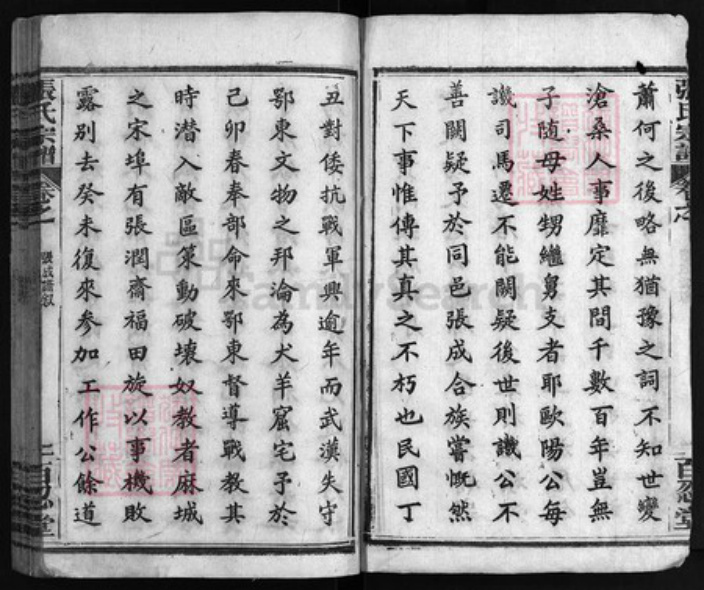 蕭何之後略無猶豫之詞不知世變
滄桑人事靡定其間千數百年豈無
子随母姓甥繼舅支者耶歐陽公每
譏司馬遷不能闕疑後世則譏公不
善闕疑予於同邑張成合族嘗慨然
天下事惟傳其真之不朽也民國丁
丑對倭抗戰軍興逾年而武漢失守
鄂東文物之邦淪為犬羊窟宅予於
己卯春奉部命來鄂東督導戰教其
時潜入敵區策動破壞奴教者麻城
之宋埠有張潤齋福田旋以事機敗
露別去癸未復來參加工作公餘道
張氏宗譜
卷之一
百忍堂
FamilySearch